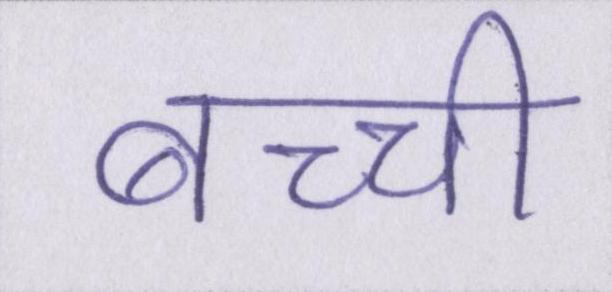 बच्ची